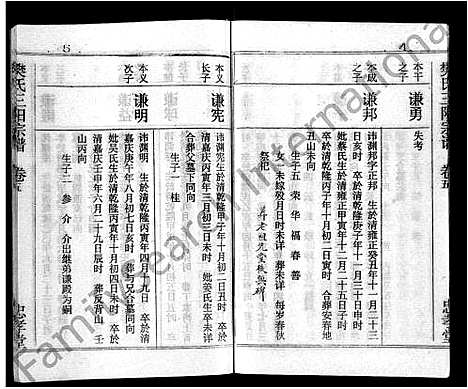 樊氏三陽宗譜 卷五
本干之子
谦勇
失考
本成之子
谦邦
讳渊邦字正邦 生於清雍正癸丑年十一月二十三
日时 卒於清乾隆庚子年十一月三十日申时
妣蔡氏生於清雍正甲寅年十二月二十五日子时
卒於清乾隆丙子年十月初二日未时 合葬安基地
丑山未向
生子五 荣 华 福 春 善
女一 未嫁殁月日时未详 葬未详 每岁春秋
祭祀
本义长子
谦宪
讳渊宪生於清乾隆甲子年十月初二日丑时 卒於
清乾隆丙寅年三月初三日未时 妣姜氏生卒未详
合葬父墓下同向
生子一 桂
本义次子
谦明
讳渊明 生於清乾隆丙寅年四月十九日 卒於清
嘉庆庚午年八月初七日亥时 葬与兄合墓同向
妣吴氏生於清乾隆丙寅年十月初四日未时 卒於
清嘉庆壬申年六月二十九日辰时 葬反背山 壬
山丙向
生子二 参 介 介出继弟谦殿为嗣
樊氏三阳宗谱 卷五
忠孝堂
FamilySearch International